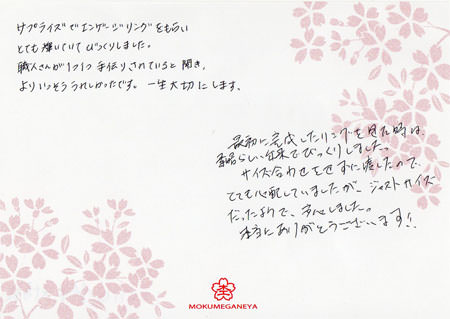 サプライズでエンゲージリングをもらい
とても輝いていてびっくりしました。
職人さんが1つ1つ手作りされていると聞き、
よりいっそううれしかったです。一生大切にします。
最初に完成したリングを見た時は、
素晴らしい出来でびっくりしました。
サイズ合わせをせずに渡したので、
とても心配していましたが、ジャストサイズ
だったようで、安心しました。
本当にありがとうございます!
MOKUMEGANEYA